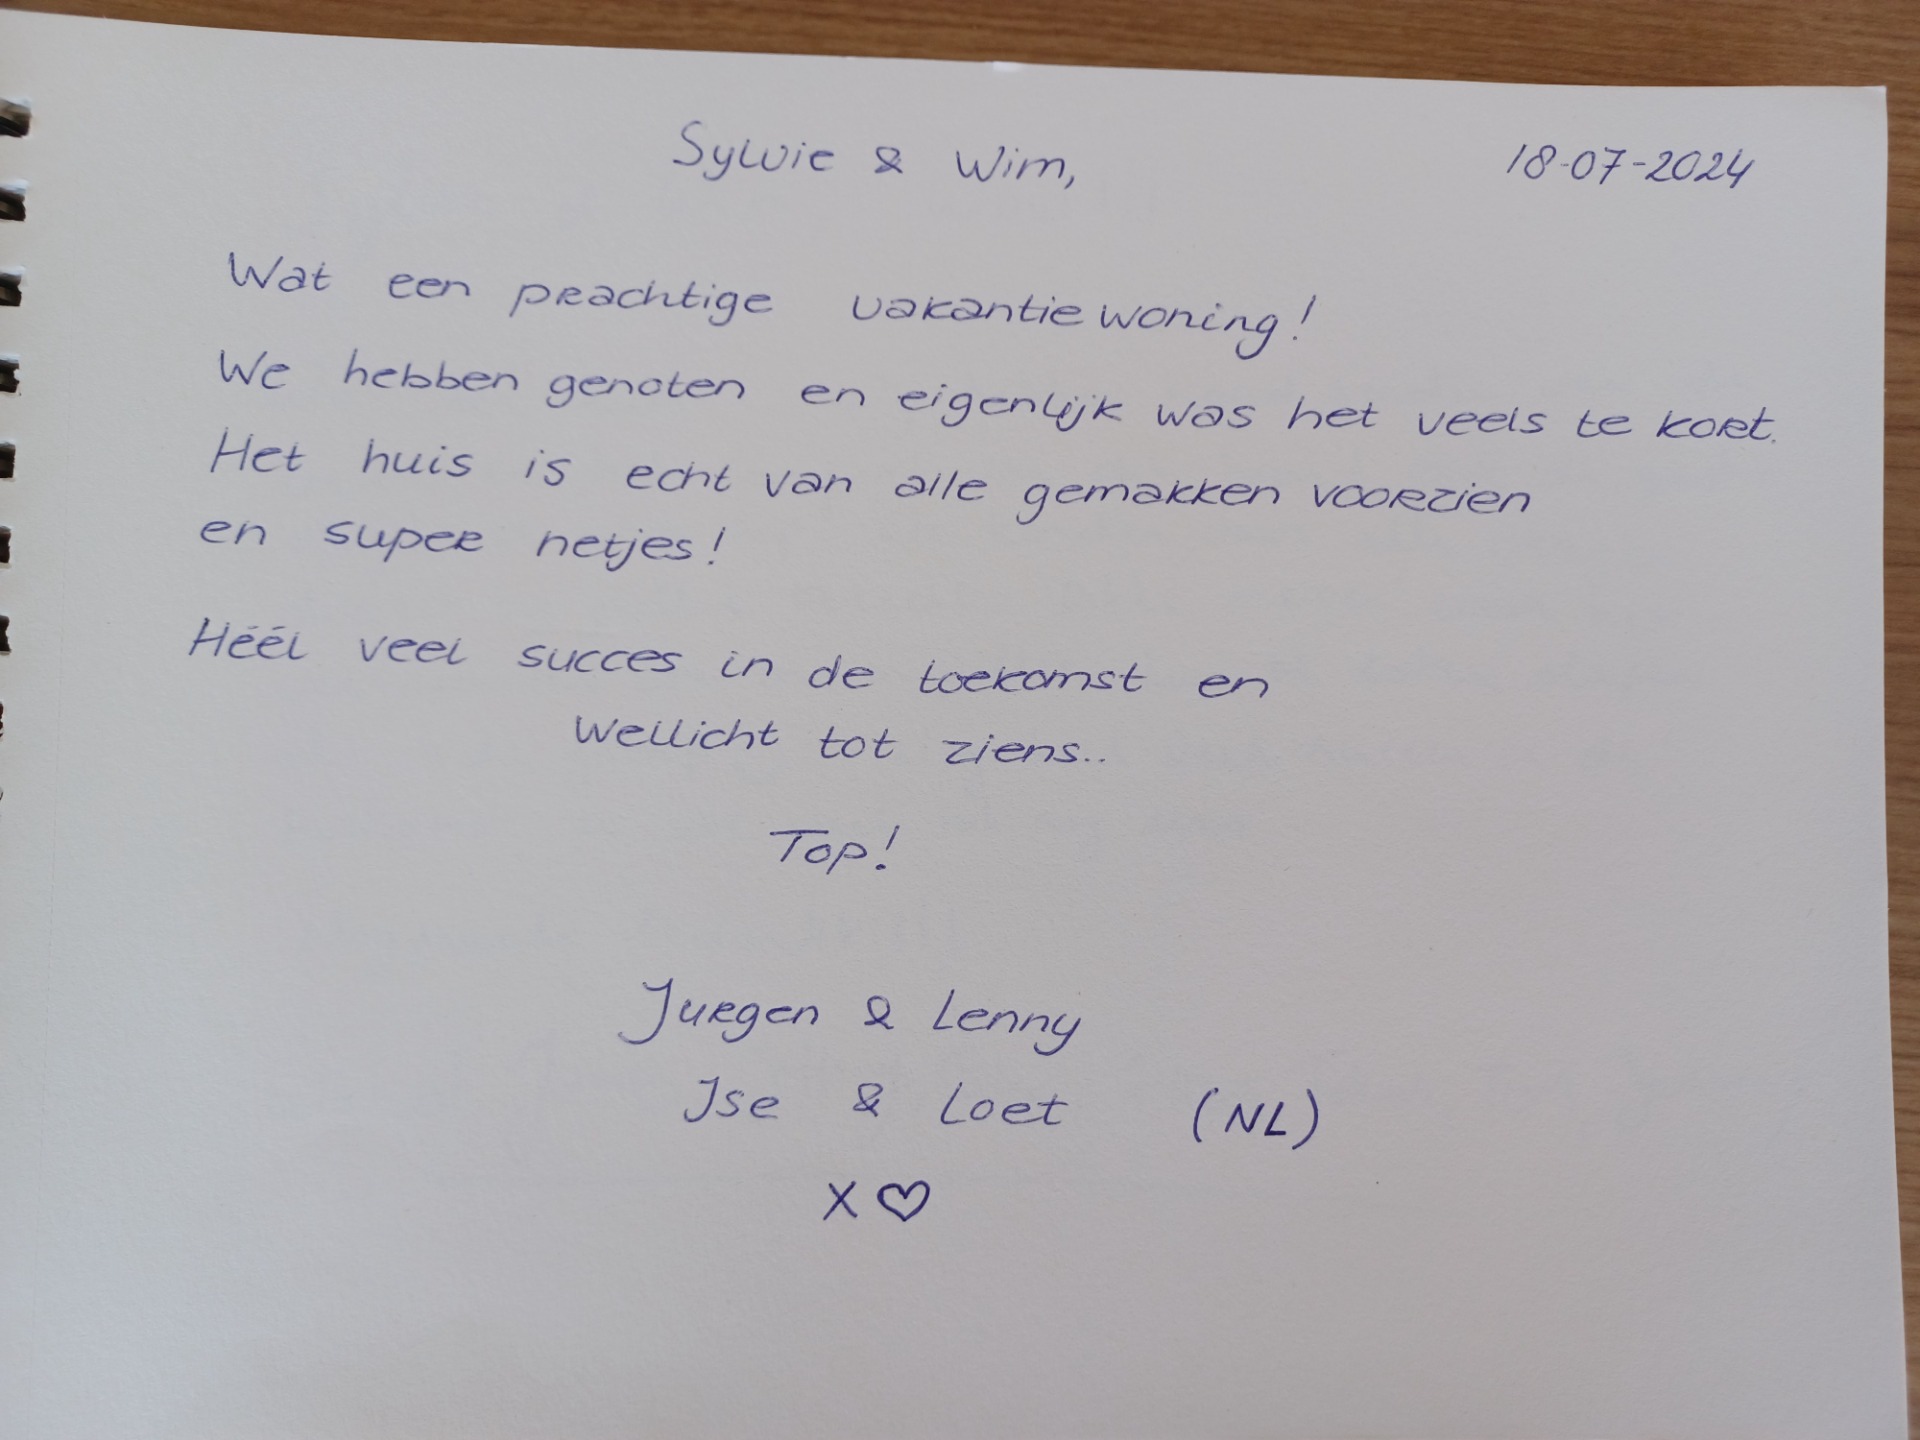 Sylvie & Wim,
18-07-2024
Wat een prachtige vakantiewoning!
We hebben genoten en eigenlijk was het veels te kort.
Het huis is echt van alle gemakken voorzien
en super netjes!
Héél veel succes in de toekomst en
wellicht tot ziens..
Top!
Jurgen & Lenny
Jse & Loet (NL)
X♡